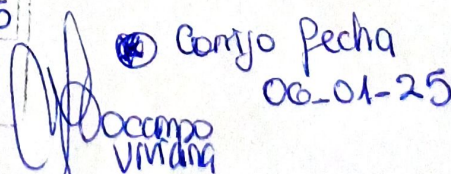 Corrijo fecha
06-01-25
Docampo
Viviana